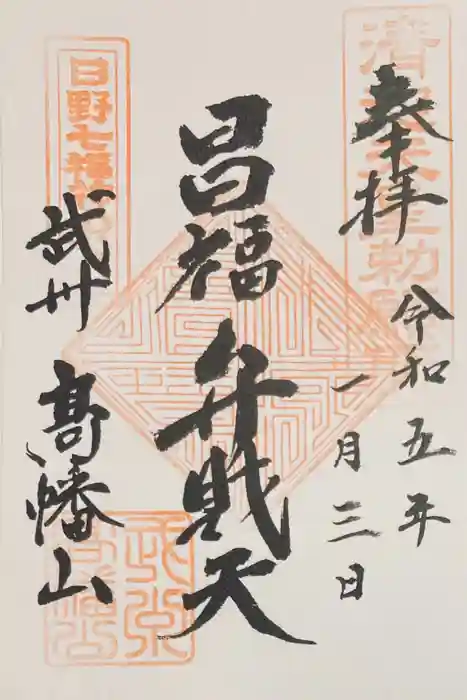 奉拝
令和五年
一月三日
呂福弁財天
武州
髙幡山
日野七福神